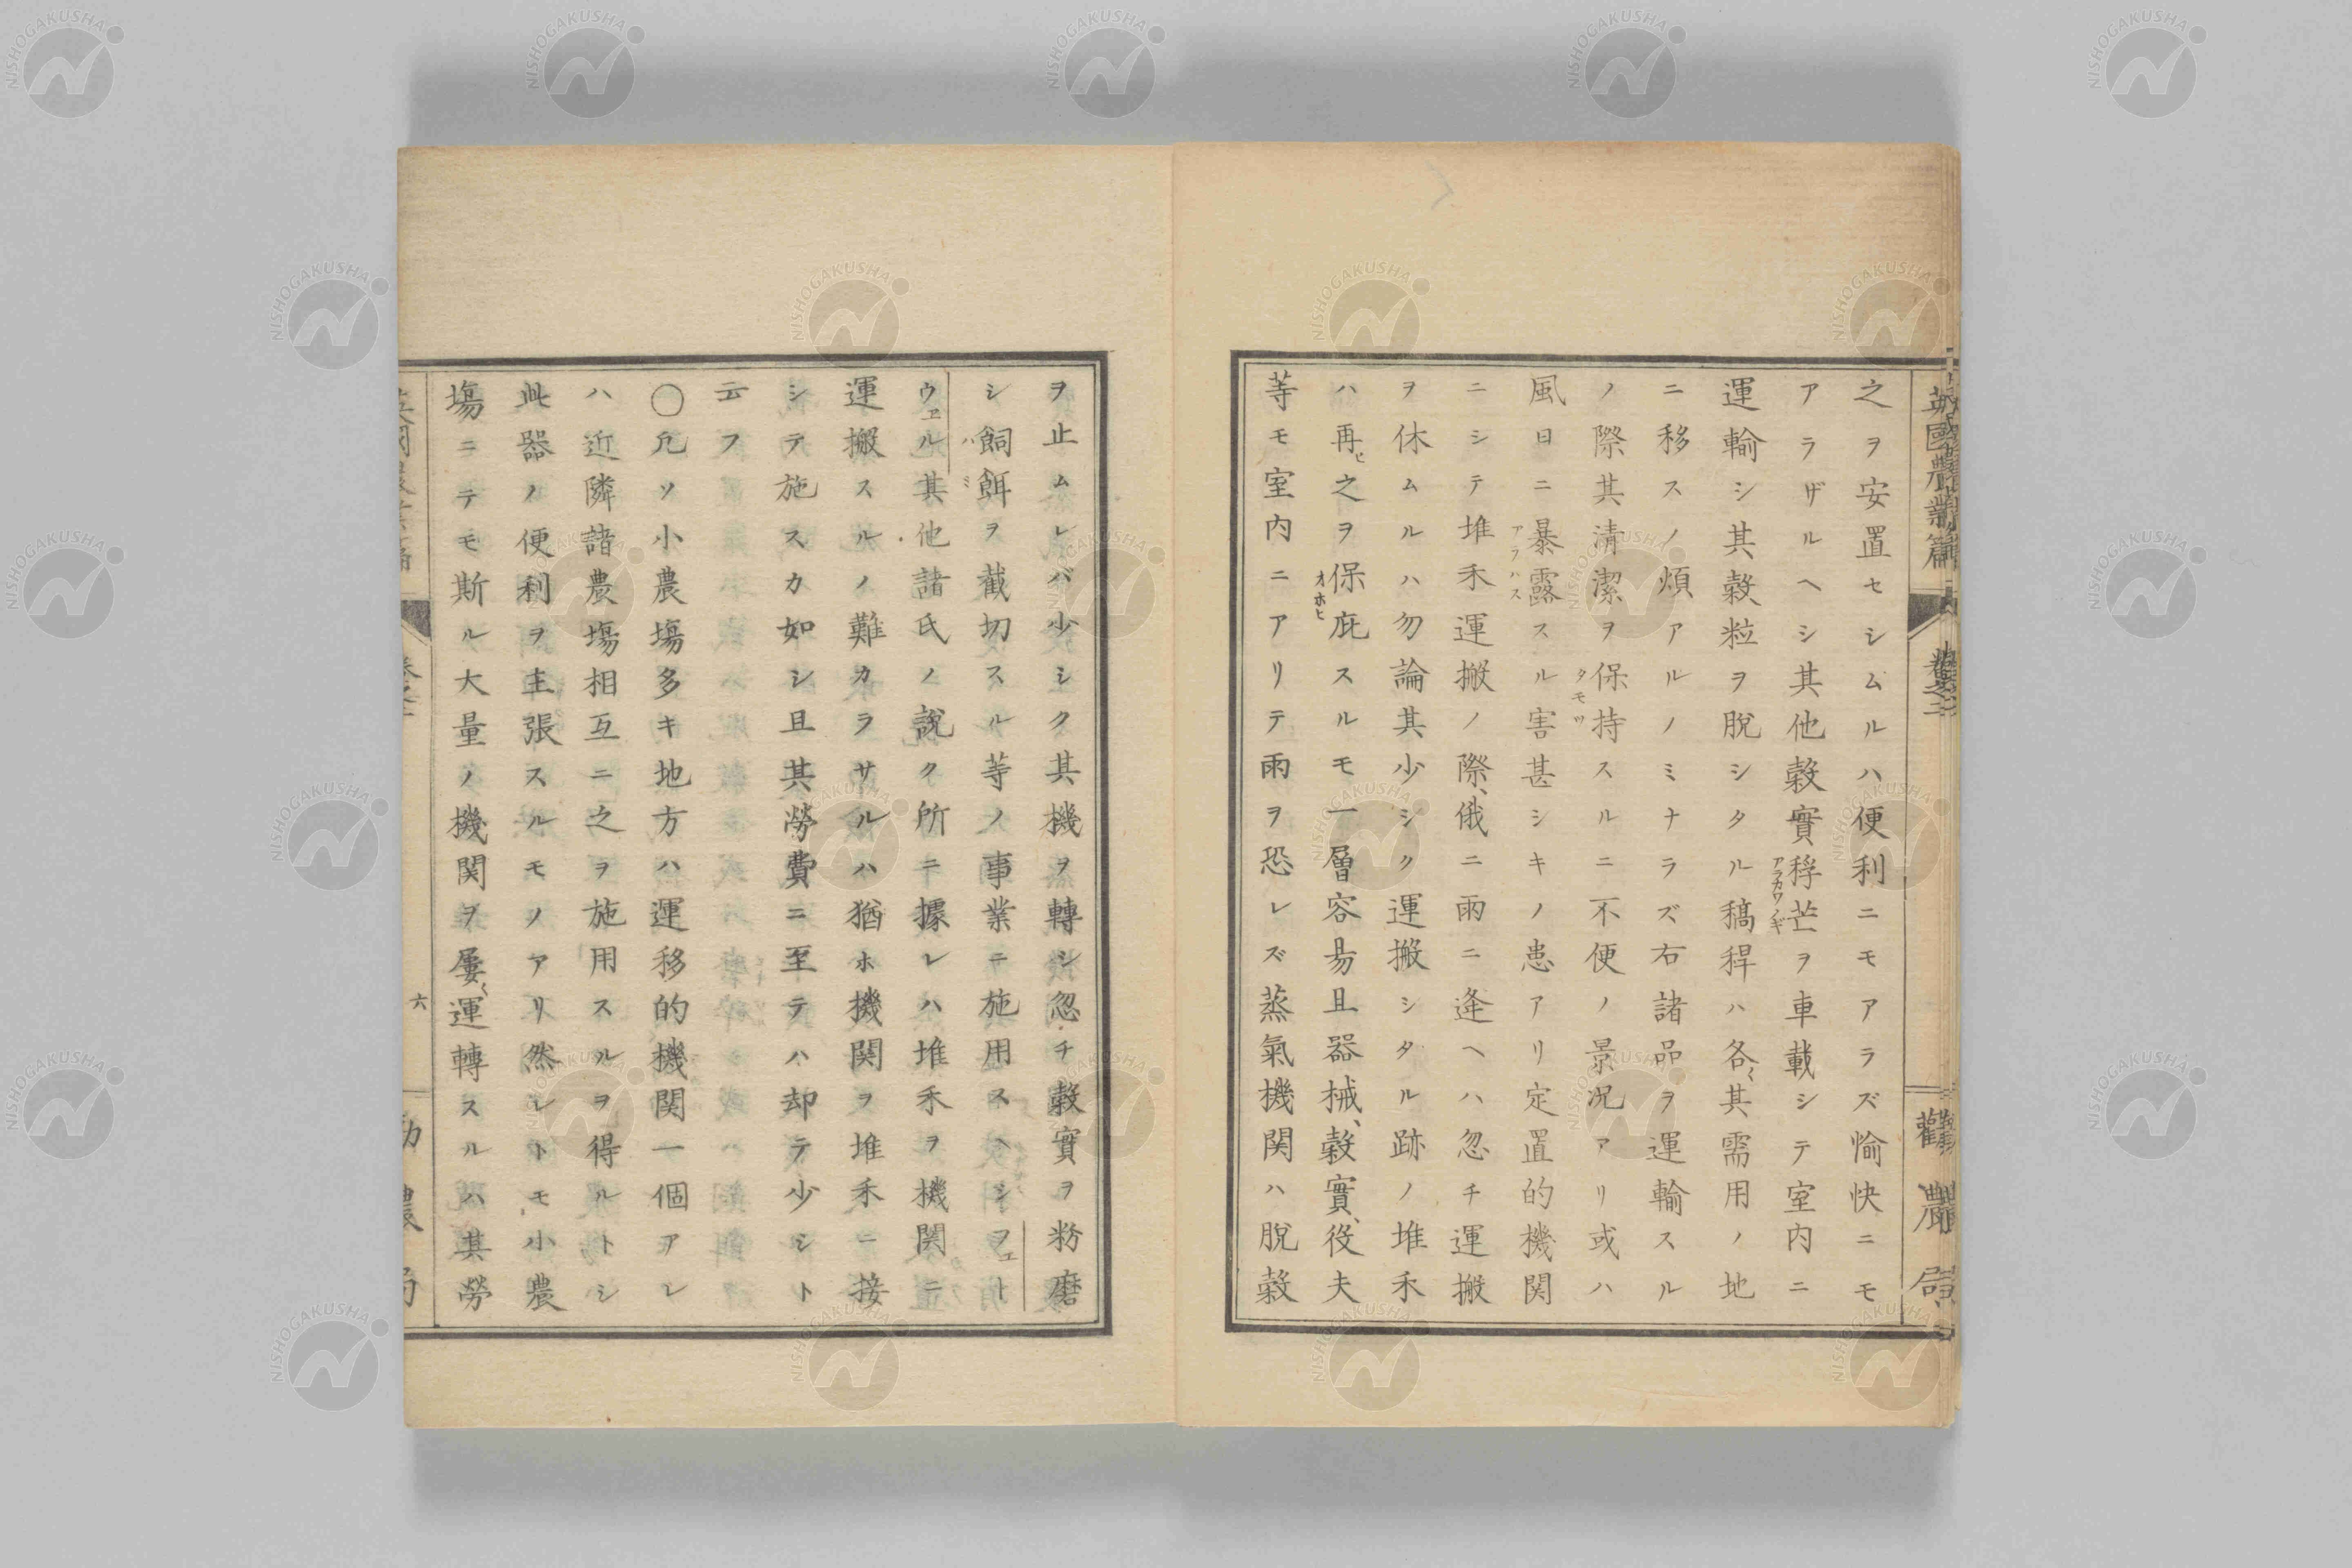 之ヲ安置セシムルハ便利ニモアラズ愉快ニモ
アラザルヘシ其他穀實稃芒ヲ車載シテ室内ニ
運輸シ其穀粒ヲ脱シタル稿稈ハ各〻其需用ノ地
ニ移スノ煩アルノミナラズ右諸品ヲ運輸スル
ノ際其清潔ヲ保持スルニ不便ノ景况アリ或ハ
風日ニ暴露スル害甚シキノ患アリ定置的機関
ニシテ堆禾運搬ノ際、俄ニ雨ニ逢ヘハ忽チ運搬
ヲ休ムルハ勿論其少シク運搬シタル跡ノ堆禾
ハ再ヒ之ヲ保庇スルモ一層容易且器械、穀實、役夫
等モ室内ニアリテ雨ヲ恐レズ蒸氣機関ハ脱穀
ヲ止ムレバ少シク其機ヲ轉シ忽チ穀實ヲ粉磨
シ飼餌ヲ截切スル等ノ事業ニ施用スヘシヲエト
ウヱル其他諸氏ノ說ク所ニ據レハ堆禾ヲ機関ニ
運搬スルノ難カラサルハ猶ホ機関ヲ堆禾ニ接
シテ施スカ如シ且其勞費ニ至テハ却テ少シト
云フ
〇凡ソ小農塲多キ地方ハ運移的機関一個アレ
ハ近隣諸農塲相互ニ之ヲ施用スルヲ得ルトシ
此器ノ便利ヲ主張スルモノアリ然レトモ、小農
塲ニテモ斯ル大量ノ機関ヲ屢〻運轉スルハ其勞
六
NISHOGAKUSHA